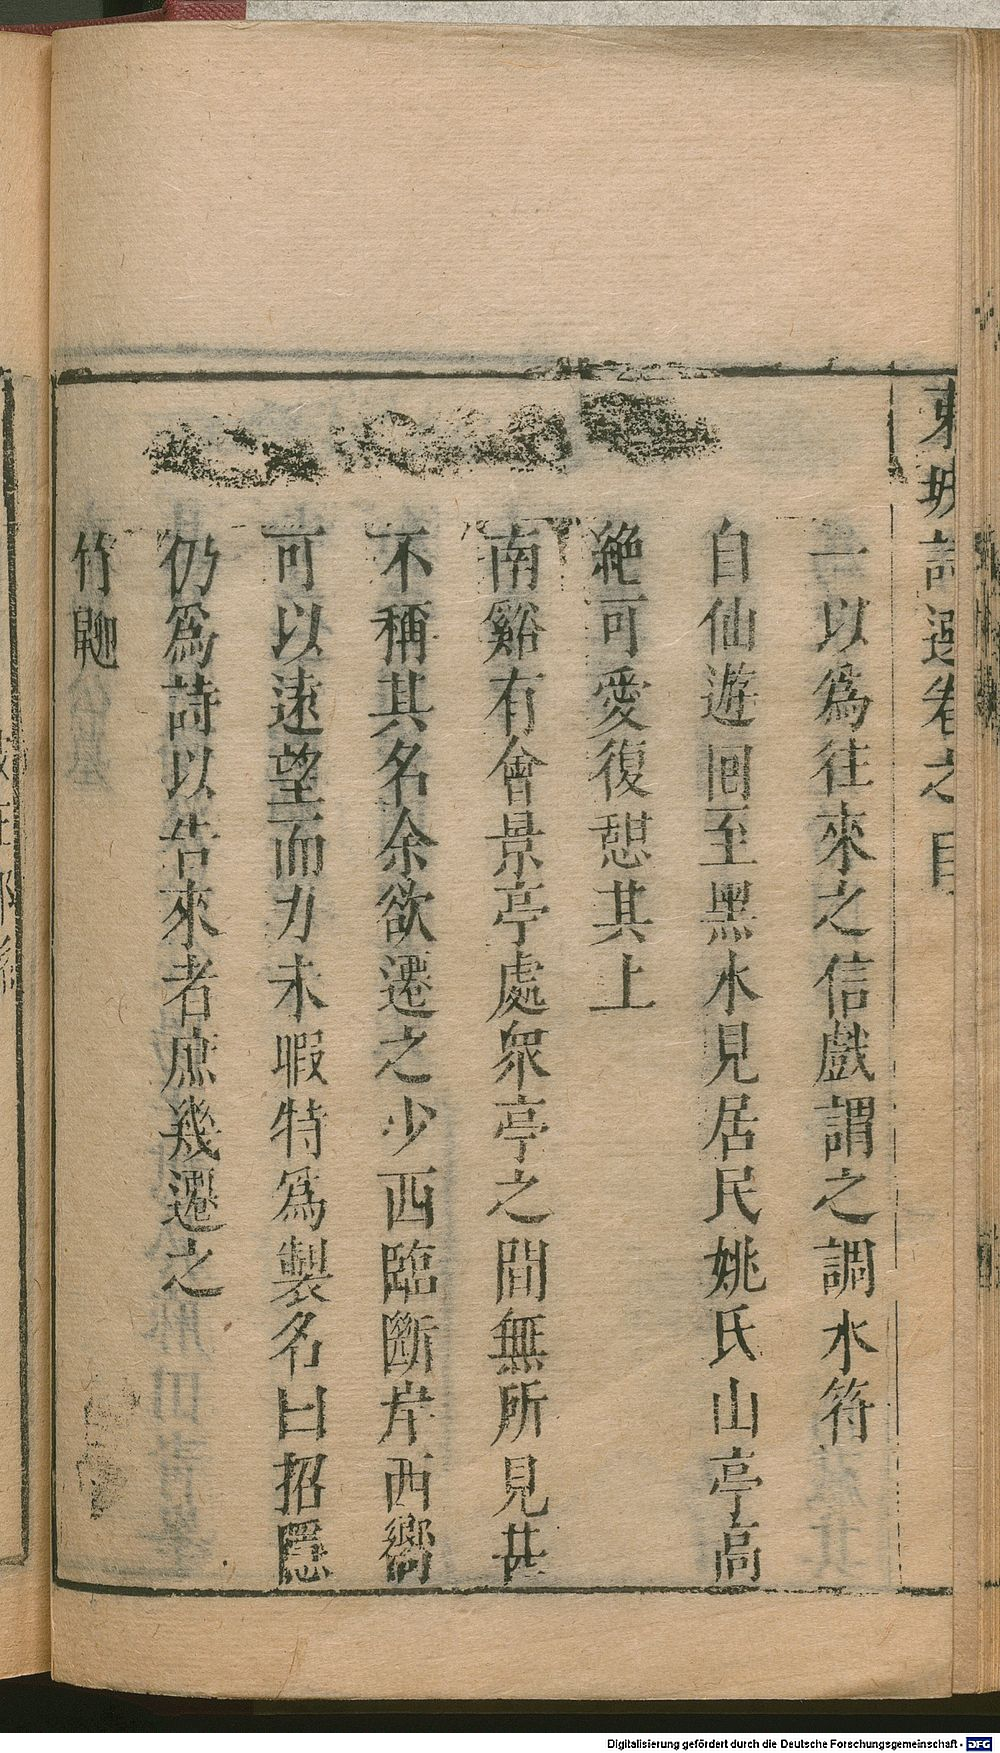 東坡詩選卷之目
一以爲往來之信戲謂之調水符
自仙遊回至黑水見居民姚氏山亭高
絶可愛復憇其上
南谿有會景亭處衆亭之間無所見甚
不稱其名余欲遷之少西臨斷岸西嚮
可以遠望而力未暇特爲製名曰招隱
仍爲詩以告來者庶幾遷之
竹䶉
Digitalisierung gefördert durch die Deutsche Forschungsgemeinschaft - DFG